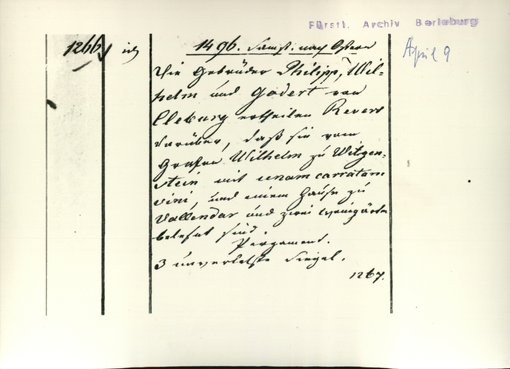 Fürstl. Archiv Berleburg
1266
1496. Samst. nach Ostern
April 9
Die Gebrüder Philipp, Wil-
helm und Godert von
Cleburg ertheilen Revers
darüber, daß sie vom
Grafen Wilhelm zu Witgen-
stein mit unam carratam
vini, und einem Hause zu
Vallendar und zwei Weingärten
belehnt sind.
Pergament.
3 unverletzte Siegel.
1267.